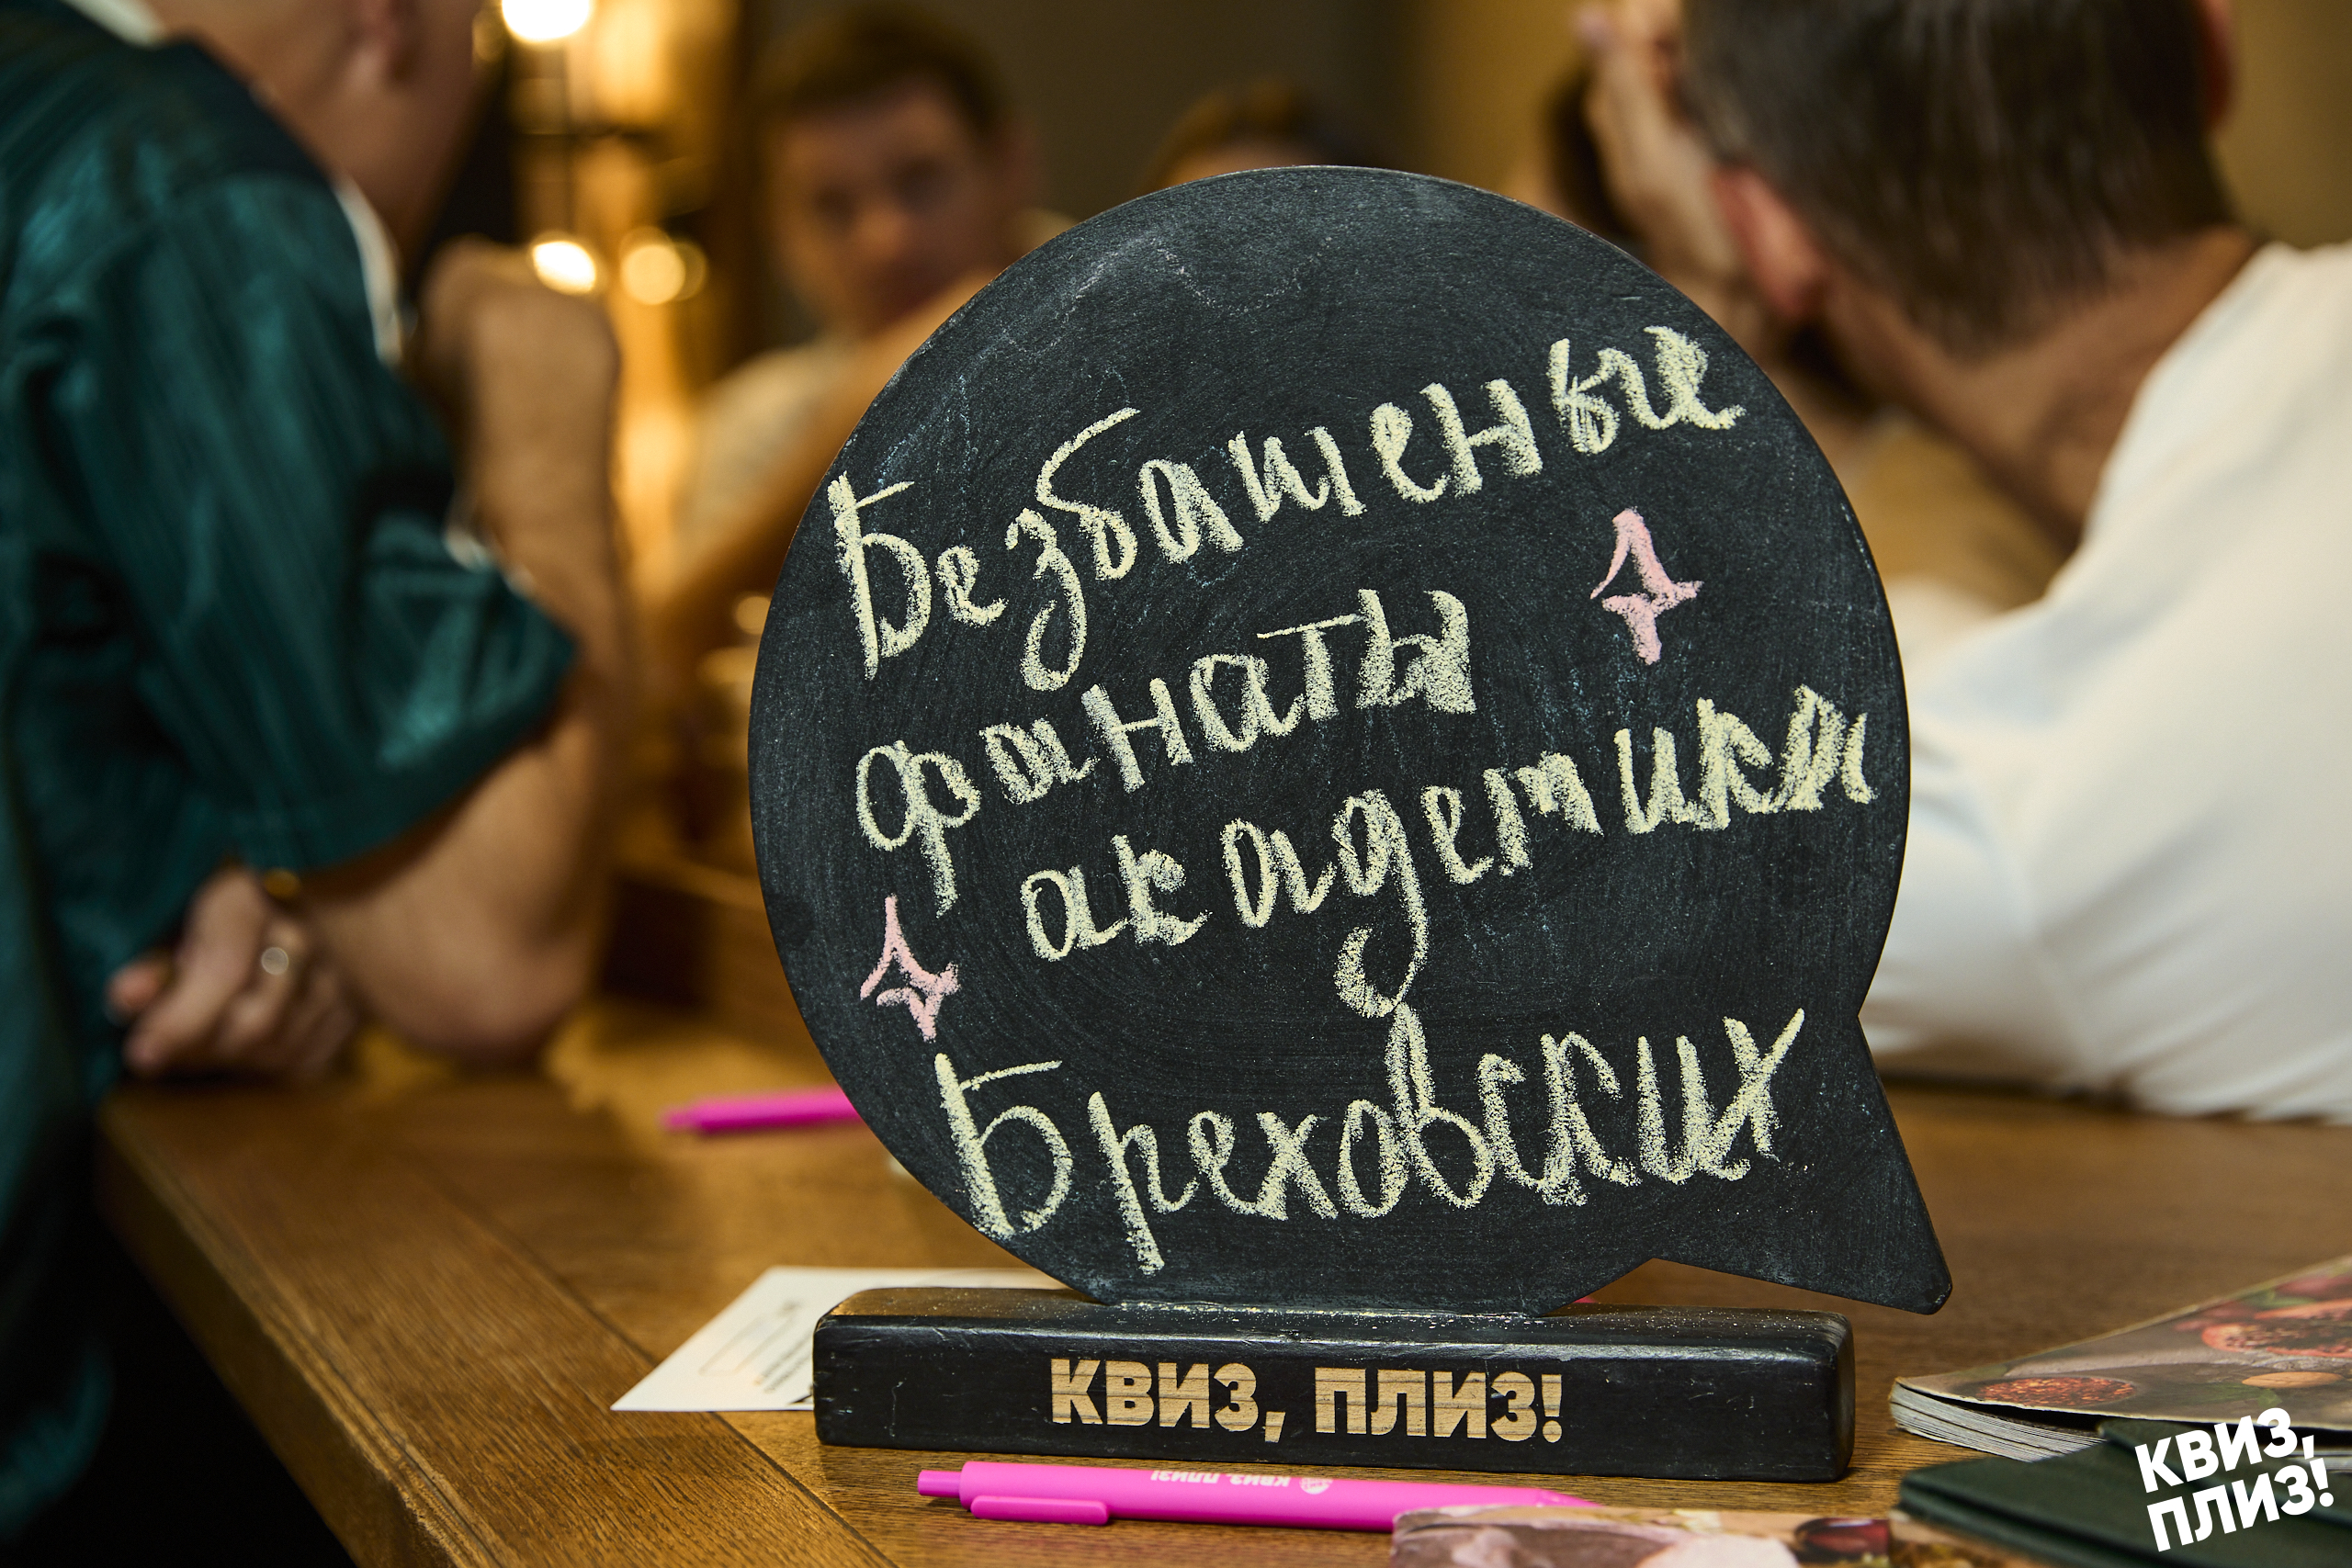 Безбашеные
фанаты
академики
Бреховских
КВИЗ, ПЛИЗ!
КВИЗ, ПЛИЗ!
КВИЗ,
ПЛИЗ!